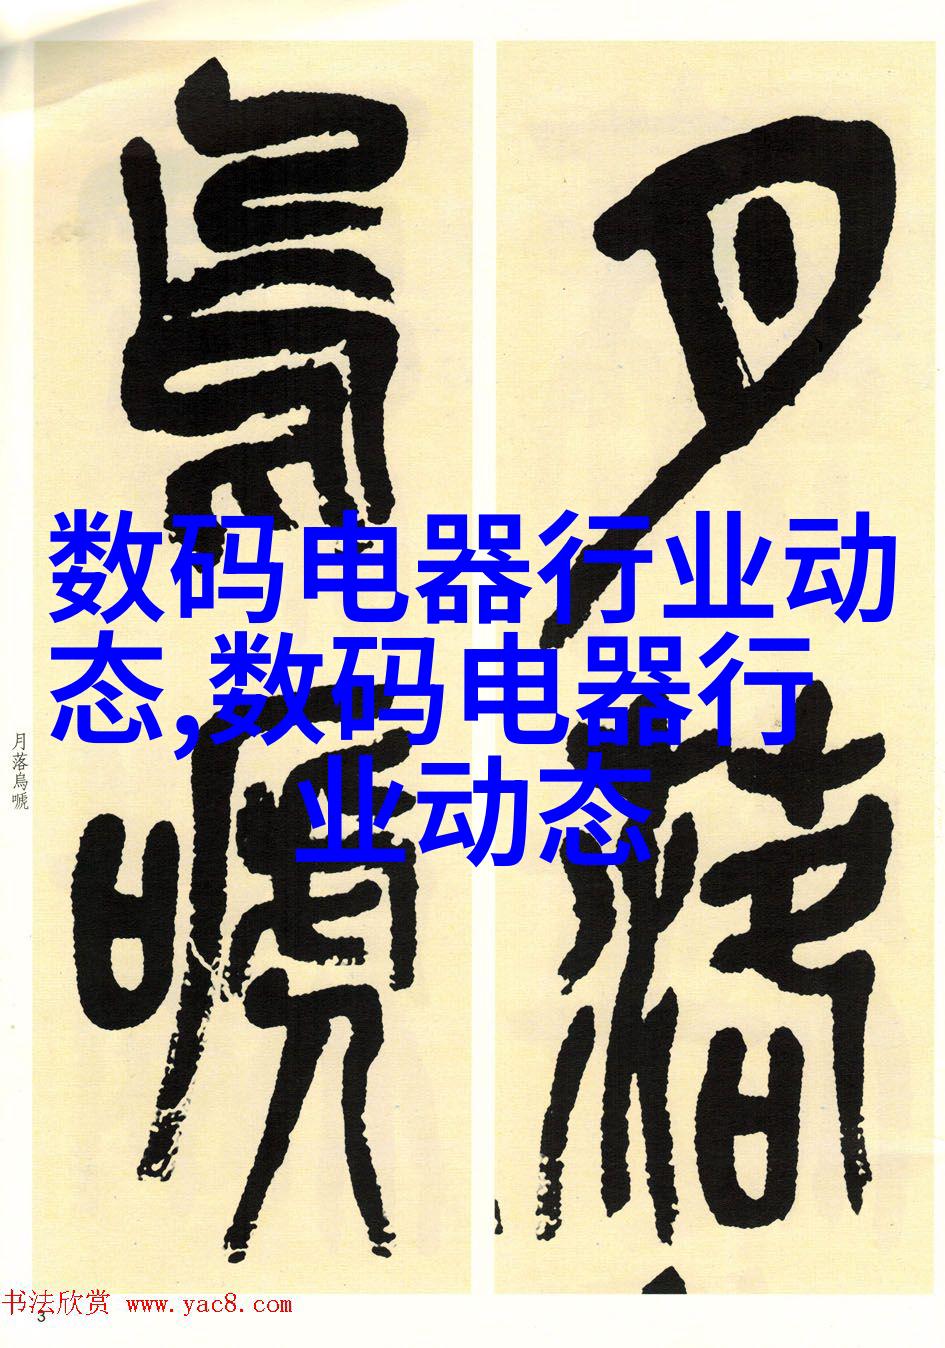 月落
烏嗁
数码电器行业动
态,数码电器行
业动态
月落烏嗁
书法欣赏 www.yac8.com
3